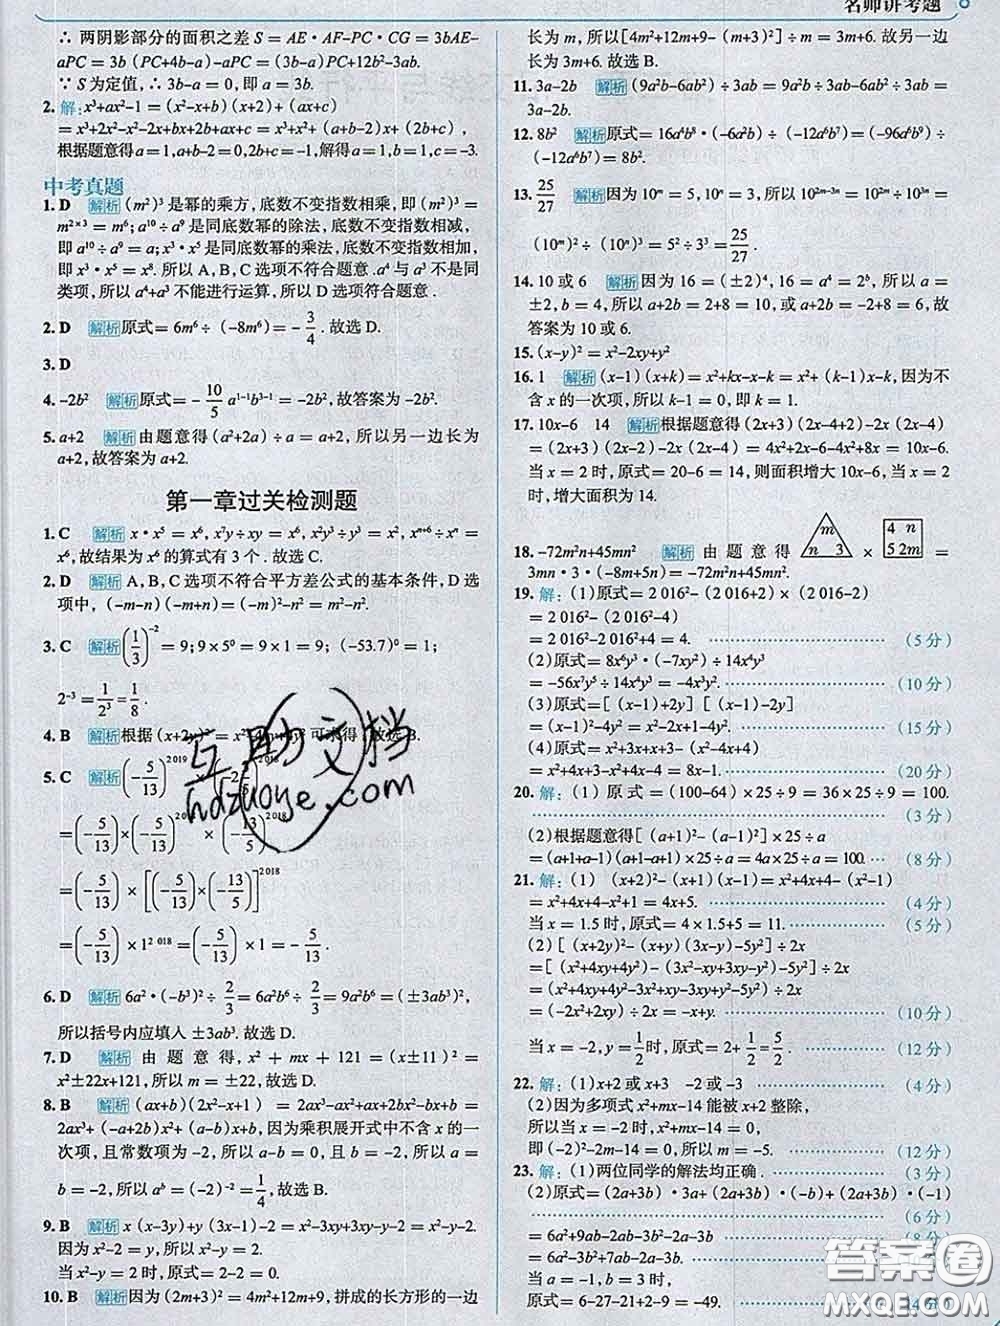 名师讲考题
∴ 两阴影部分的面积之差 S = AE·AF-PC·CG = 3bAE-
aPC = 3b (PC+4b-a) -aPC = (3b-a) PC+12b²-3ab.
∵ S 为定值, ∴ 3b-a = 0, 即 a = 3b.
2. 解: x³+ax²-1 = (x²-x+b) (x+2) + (ax+c)
= x³+2x²-x²-2x+bx+2b+ax+c = x³+x²+ (a+b-2)x+ (2b+c),
根据题意得 a = 1, a+b-2 = 0, 2b+c = -1, 解得 a = 1, b = 1, c = -3.
中考真题
1. D 解析 (m²)³ 是幂的乘方, 底数不变指数相乘, 即 (m²)³ =
m²ˣ³ = m⁶; a¹⁰÷a⁹ 是同底数幂的除法, 底数不变指数相减,
即 a¹⁰÷a⁹ = a; x³·x⁵ 是同底数幂的乘法, 底数不变指数相加,
即 x³·x⁵ = x⁸. 所以 A, B, C 选项不符合题意. a⁴ 与 a³ 不是同
类项, 所以 a⁴+a³ 不能进行运算, 所以 D 选项符合题意.
2. D 解析 原式 = 6m⁶÷ (-8m⁶) = -3/4. 故选 D.
3. D
4. -2b² 解析 原式 = -10/5 a¹⁻¹b³⁻¹ = -2b², 故答案为 -2b².
5. a+2 解析 由题意得 (a²+2a) ÷a = a+2, 所以另一边长为
a+2, 故答案为 a+2.
第一章过关检测题
1. C 解析 x·x⁵ = x⁶, x⁷y÷xy = x⁶, x²y³÷y³ = x², xⁿ⁺⁶÷xⁿ =
x⁶, 故结果为 x⁶ 的算式有 3 个. 故选 C.
2. D 解析 A, B, C 选项不符合平方差公式的基本条件, D 选
项中, (-m-n) (-m+n) = (-m)²-n² = m²-n².
3. C 解析 (1/3)⁻² = 9; 9×5⁰ = 9×1 = 9; (-53.7)⁰ = 1;
2⁻³ = 1/2³ = 1/8.
4. B 解析 根据 (x+2y)² 可求得. 故选 B.
5. C 解析 (-5/13)²⁰¹⁹
= (-5/13) × (-5/13)²⁰¹⁸ × (-13/5)²⁰¹⁸
= (-5/13) × [(-5/13) × (-13/5)]²⁰¹⁸
= (-5/13) ×1²⁰¹⁸ = (-5/13) ×1 = -5/13.
6. D 解析 6a²·(-b³)²÷2/3 = 6a²b⁶÷2/3 = 9a²b⁶ = (±3ab³)²,
所以括号内应填入 ±3ab³. 故选 D.
7. D 解析 由题意得, x² + mx + 121 = (x±11)² =
x²±22x+121, 所以 m = ±22, 故选 D.
8. B 解析 (ax+b)(2x²-x+1) = 2ax³-ax²+ax+2bx²-bx+b =
2ax³+ (-a+2b)x²+ (a-b)x+b, 因为乘积展开式中不含 x 的一
次项, 且常数项为 -2, 所以 a-b = 0, 且 b = -2, 所以 a
= b = -2, 所以 aᵇ = (-2)⁻² = 1/4, 故选 B.
9. B 解析 x (x-3y)+y (3x-1)-2 = x²-3xy+3xy-y-2 = x²-y-2.
因为 x²-2 = y, 所以 x²-y = 2.
当 x²-y = 2 时, 原式 = 2-2 = 0.
10. B 解析 因为 (2m+3)² = 4m²+12m+9, 拼成的长方形的一边
长为 m, 所以 [4m²+12m+9- (m+3)²] ÷m = 3m+6. 故另一边
长为 3m+6. 故选 B.
11. 3a-2b 解析 (9a²b-6ab²) ÷3ab = 9a²b÷3ab-6ab²÷3ab =
3a-2b.
12. 8b² 解析 原式 = 16a⁴b⁸·(-6a²b) ÷ (-12a⁶b⁷) = (-96a⁶b⁹) ÷
(-12a⁶b⁷) = 8b².
13. 25/27 解析 因为 10ᵐ = 5, 10ⁿ = 3, 所以 10²ᵐ⁻³ⁿ = 10²ᵐ÷10³ⁿ =
(10ᵐ)²÷ (10ⁿ)³ = 5²÷3³ = 25/27.
14. 10 或 6 解析 因为 16 = (±2)⁴, 16 = a⁴ = 2ᵇ, 所以 a =
±2, b = 4, 所以 a+2b = 2+8 = 10, 或 a+2b = -2+8 = 6, 故
答案为 10 或 6.
15. (x-y)² = x²-2xy+y²
16. 1 解析 (x-1)(x+k) = x²+kx-x-k = x²+ (k-1)x-k, 因为不
含 x 的一次项, 所以 k-1 = 0, 即 k = 1.
17. 10x-6 14 解析 根据题意得 (2x+3) (2x-4+2) -2x (2x-4)
= (2x+3) (2x-2) -2x (2x-4) = 4x²+2x-6-4x²+8x = 10x-6.
当 x = 2 时, 原式 = 20-6 = 14, 则面积增大 10x-6, 当 x = 2
时, 增大面积为 14.
18. -72m²n+45mn² 解析 由题意得 m n 3 × 4 n 5 2m =
3mn·3·(-8m+5n) = -72m²n+45mn².
19. 解: (1)原式 = 2 016²- (2 016+2) × (2 016-2)
= 2 016²- (2 016²-4)
= 2 016²-2 016²+4 = 4. (5 分)
(2)原式 = 8x⁶y³·(-7xy²) ÷14x⁴y³
= -56x⁷y⁵÷14x⁴y³ = -4x³y². (10 分)
(3)原式 = [ (x-1)+2y] [ (x-1)-2y]
= (x-1)²-4y² = x²-2x+1-4y². (15 分)
(4)原式 = x²+3x+x+3- (x²-4x+4)
= x²+4x+3-x²+4x-4 = 8x-1. (20 分)
20. 解: (1) 原式 = (100-64) ×25÷9 = 36×25÷9 = 100.
(3 分)
(2)根据题意得 [ (a+1)²- (a-1)²] ×25÷a
= (a+1+a-1) (a+1-a+1) ×25÷a = 4a×25÷a = 100. (8 分)
21. 解: (1) (x+2)²- (x+1) (x-1) = x²+4x+4- (x²-1)
= x²+4x+4-x²+1 = 4x+5. (4 分)
当 x = 1.5 时, 原式 = 4×1.5+5 = 11. (5 分)
(2) [ (x+2y)²- (x+y) (3x-y) -5y²] ÷2x
= [ (x²+4xy+4y²) - (3x²-xy+3xy-y²) -5y²] ÷2x
= (x²+4xy+4y²-3x²-2xy+y²-5y²) ÷2x
= (-2x²+2xy) ÷2x = -x+y. (10 分)
当 x = -2, y = 1/2 时, 原式 = 2+1/2 = 5/2. (12 分)
22. 解: (1) x+2 或 x+3 -2 或 -3 (4 分)
(2)因为多项式 x²+mx-14 能被 x+2 整除,
所以当 x = -2 时, x²+mx-14 = 0,
即 (-2)²-2m-14 = 0, 所以 m = -5. (12 分)
23. 解: (1)两位同学的解法均正确. (3 分)
(2)原式 = (2a+3b)·3a+ (2a+3b)·(-b)+ (2a+3b)·(-1)
(6 分)
= 6a²+9ab-2ab-3b²-2a-3b (8 分)
= 6a²+7ab-3b²-2a-3b.
当 a = -1, b = 3 时,
原式 = 6-27-21+2-9 = -49. (14 分)
互助文档
hdzuoye.com
答案圈
MXQE.COM